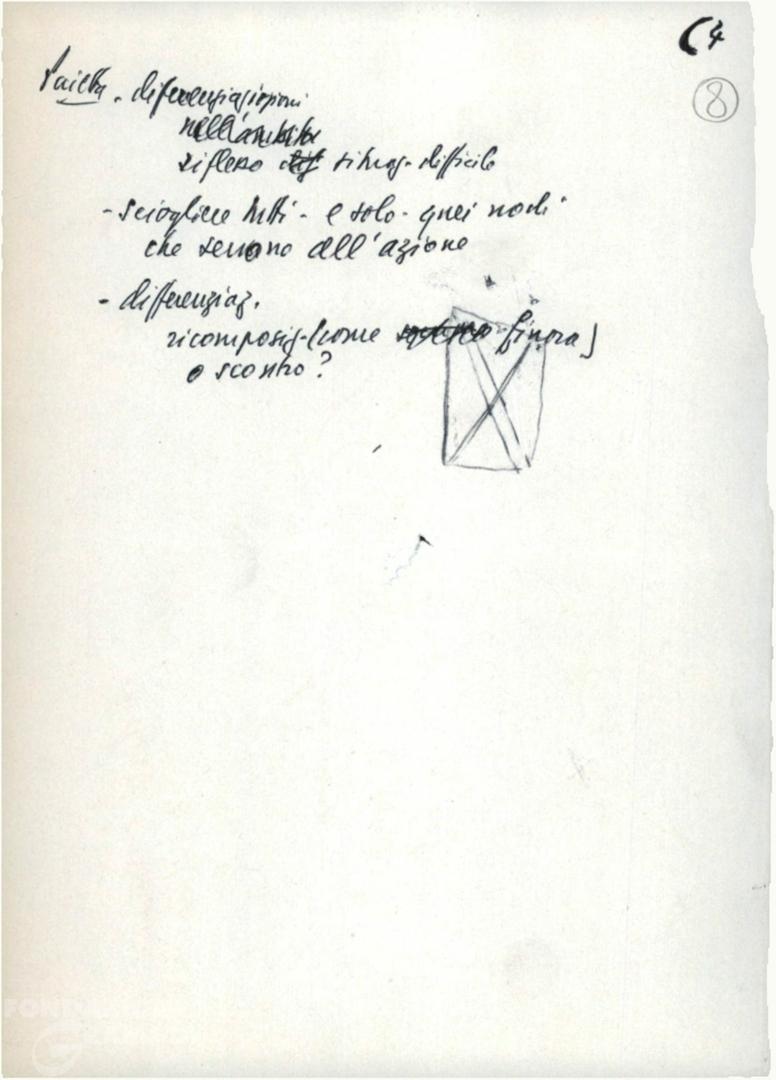 C4
8
Pajetta - differenziazioni
nell'ambito
riflesso situaz. difficile
- sciogliere tutti - e solo - quei nodi
che servono all'azione
- differenziaz.
ricomposiz. (come finora)
o scontro?
FOND